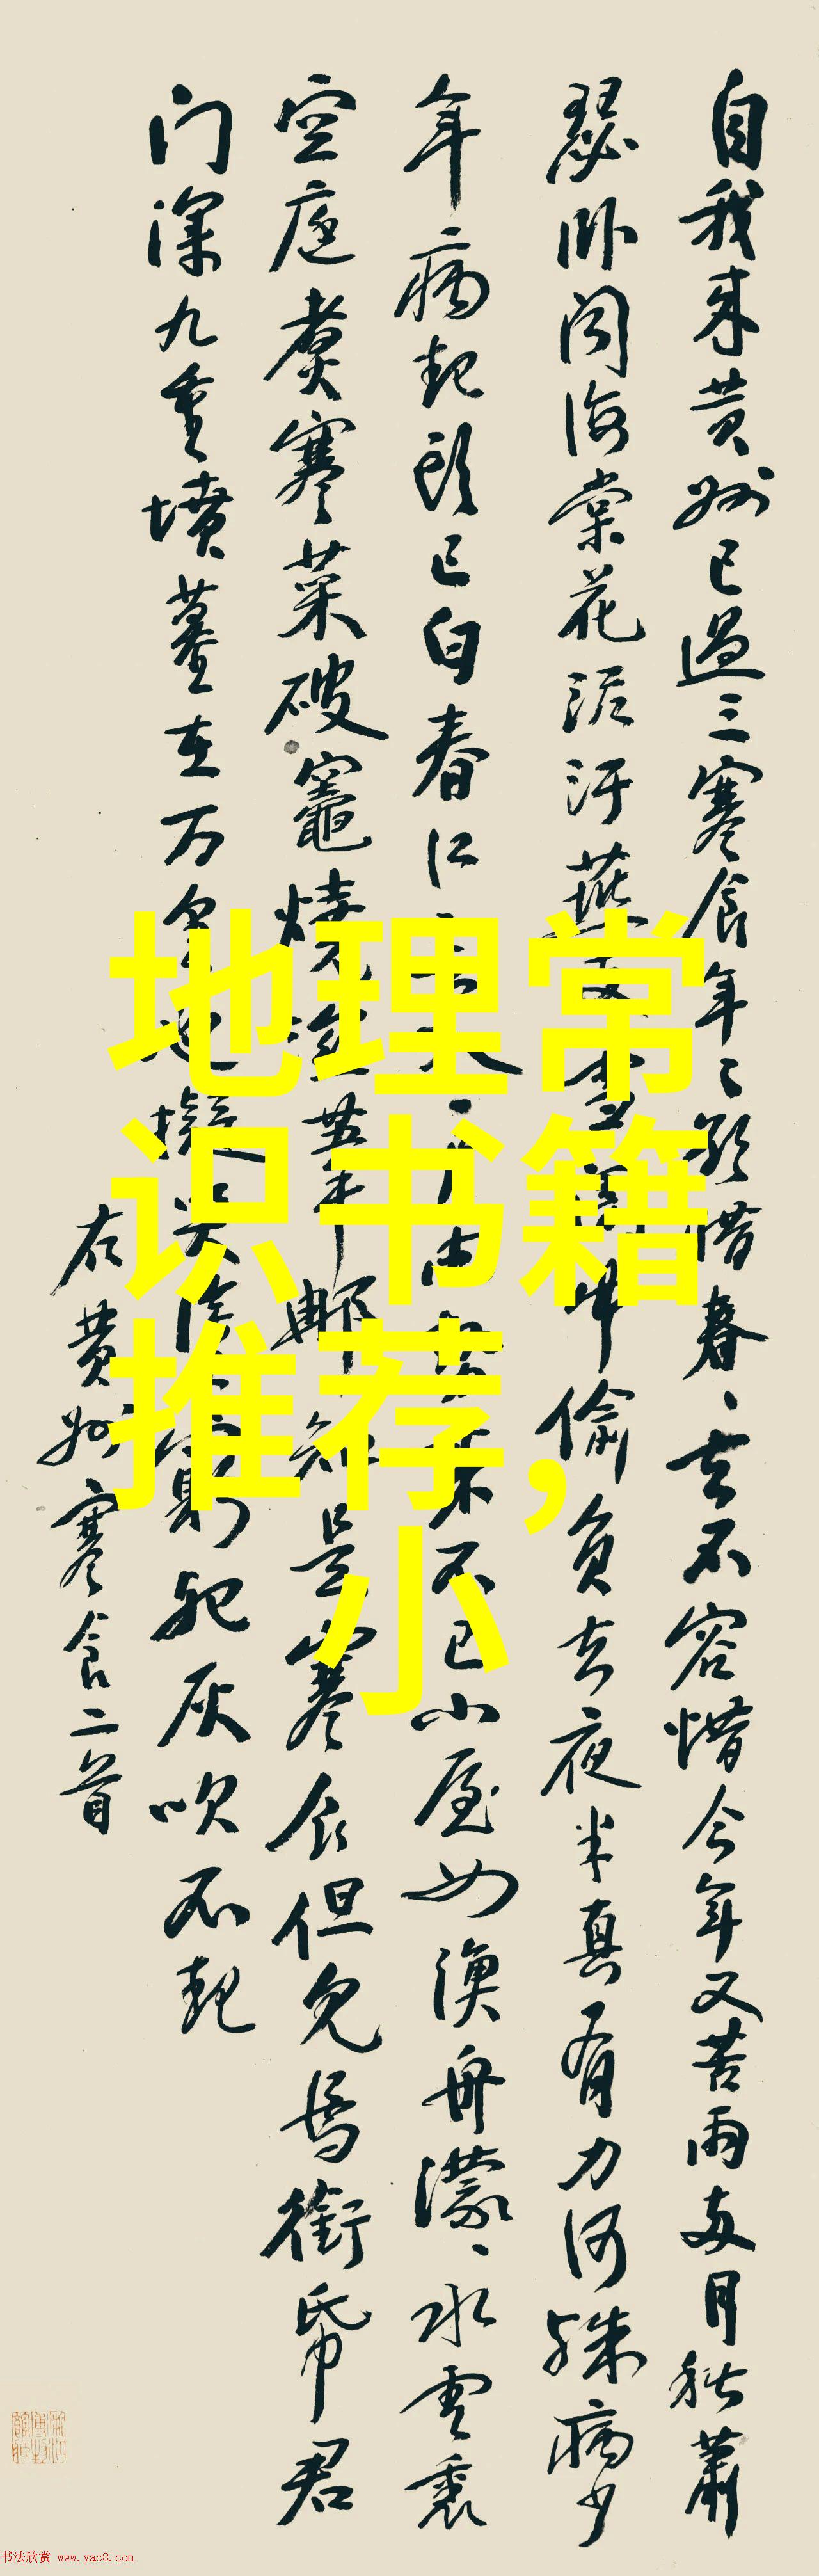 自我来黄州已過三寒食年〻欲惜春〻去不容惜今年又苦雨两月秋蕭
瑟卧闻海棠花泥汙燕支雪中偷負去夜半真有力何殊病少
年病起頭已白春江入来不已小屋如漁舟濛〻水雲裏
空庖煮寒菜破竈燒湿葦那知是寒食但見烏銜帋君
门深九重墳墓在万里也擬哭途窮死灰吹不起
右黄州寒食二首
地理常
识书籍
推荐,
小
书法欣赏 www.yac8.com